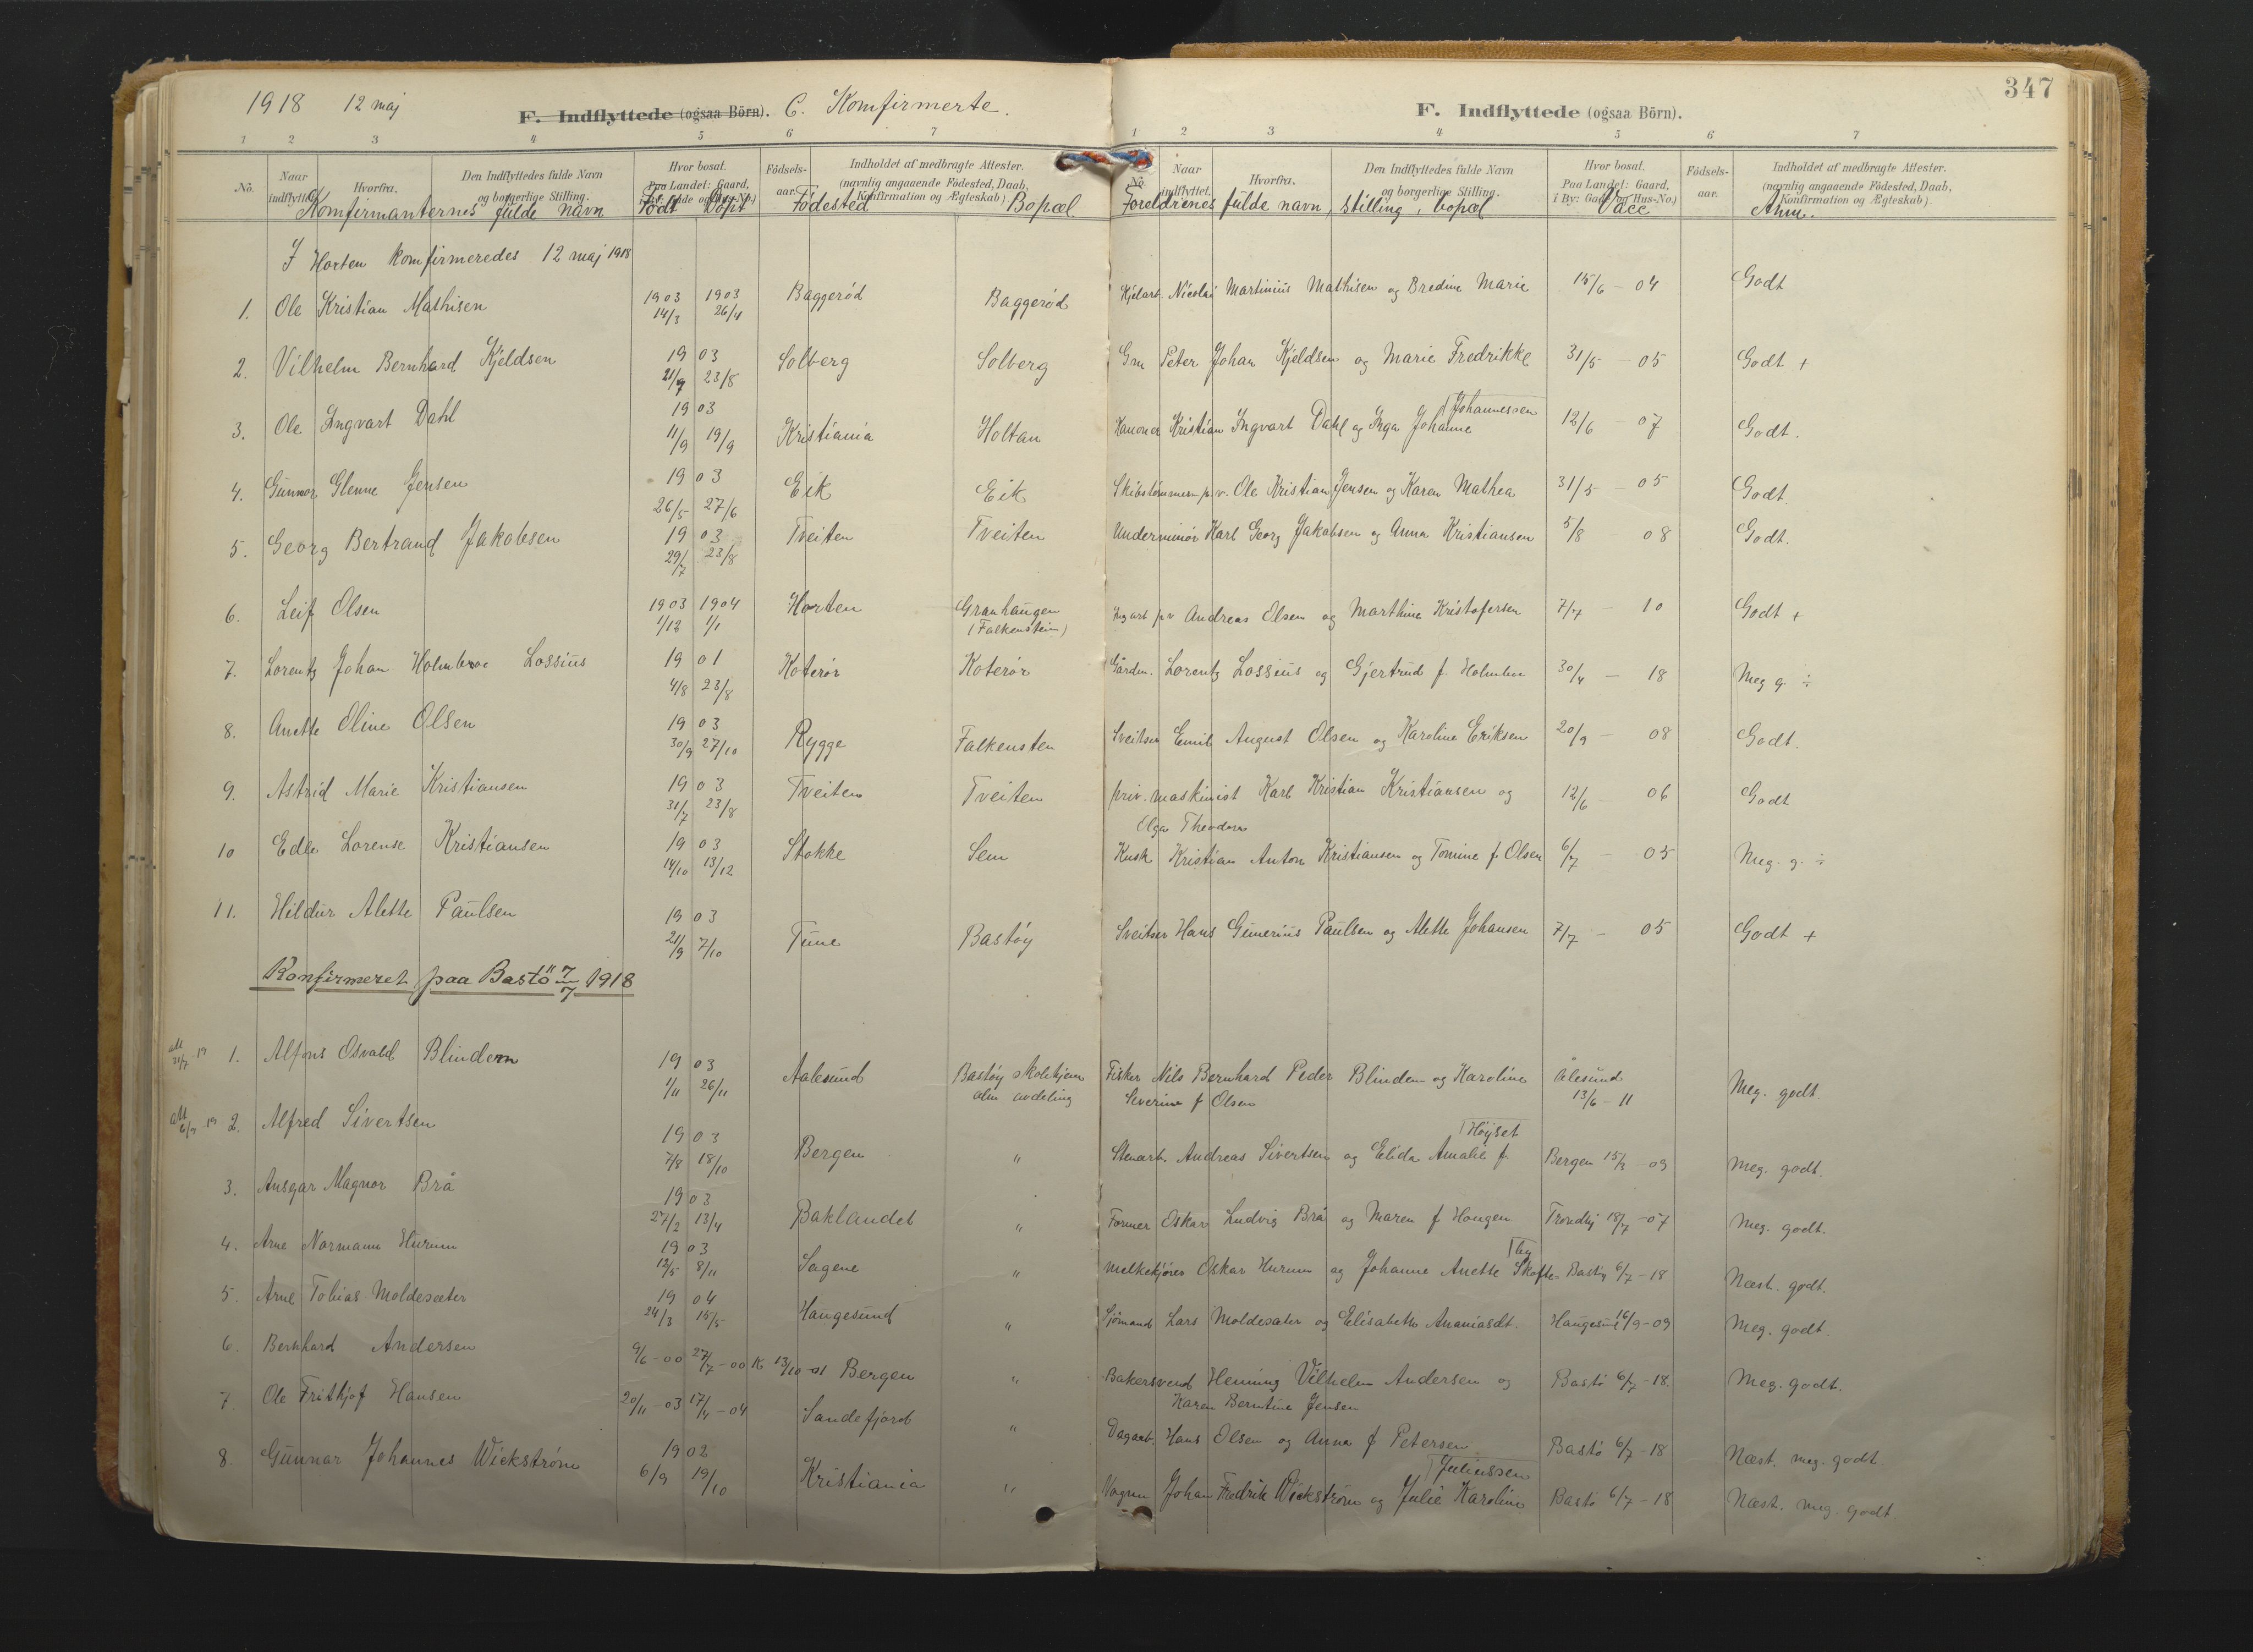 347
1918 12 maj F. Indflyttede (ogsaa Börn). C. Komfirmerte.
F. Indflyttede (ogsaa Börn).
1 2 3 4 5 6 7
1 2 3 4 5 6 7
No. Naar indflyttet. Hvorfra. Den Indflyttedes fulde Navn og borgerlige Stilling. Hvor bosat. Paa Landet: Gaard, i By: Gade og Hus-No.) Födsels-aar. Indholdet af medbragte Attester. (navnlig angaaende Födested, Daab, Konfirmation og Ægteskab)
No. Naar indflyttet. Hvorfra. Den Indflyttedes fulde Navn og borgerlige Stilling. Hvor bosat. Paa Landet: Gaard, i By: Gade og Hus-No.) Födsels-aar. Indholdet af medbragte Attester. (navnlig angaaende Födested, Daab, Konfirmation og Ægteskab)
Komfirmanternes fulde navn Födt Döpt Födested Bopæl Foreldrenes fulde navn, stilling, bopæl Vacc Anm.
I Horten komfirmeredes 12 maj 1918
1. Ole Kristian Mathisen 1903 14/3 1903 26/4 Baggeröd Baggeröd Kjelarb. Nicolai Martinius Mathisen og Bredine Marie 15/6 - 04 Godt
2. Vilhelm Bernhard Kjeldsen 1903 21/7 23/8 Solberg Solberg Gm Peter Johan Kjeldsen og Marie Fredrikke 31/5 - 05 Godt +
3. Ole Ingvart Dahl 1903 11/9 19/9 Kristiania Holtan Kanoner Kristian Ingvart Dahl og Inga Johanne Johannessen 12/6 - 07 Godt.
4. Gunnar Glenne Jensen 1903 26/5 27/6 Eik Eik Skibstømmerm p.v. Ole Kristian Jensen og Karen Mathea 31/5 - 05 Godt
5. Georg Bertrand Jakobsen 1903 29/7 23/8 Tveiten Tveiten Underminör Karl Georg Jakobsen og Anna Kristiansen 5/8 - 08 Godt.
6. Leif Olsen 1903 1/12 1904 1/1 Horten Granhaugen (Falkenstein) Andreas Olsen og Marthine Kristofersen 7/7 - 10 Godt +
7. Lorentz Johan Holmboe Lossius 1901 4/8 23/8 Koterör Koterör Garden. Lorentz Lossius og Gjertrud f. Holmboe 30/4 - 18 Meg g. ÷
8. Anette Oline Olsen 1903 30/9 27/10 Rygge Falkensten Sveitser Emil August Olsen og Karoline Eriksen 20/9 - 08 Godt.
9. Astrid Marie Kristiansen 1903 31/7 23/8 Tveiten Tveiten priv. maskinist Karl Kristian Kristiansen og Olga Theodora 12/6 - 06 Godt
10 Edle Lorense Kristiansen 1903 14/10 13/12 Stokke Sem Kusk Kristian Anton Kristiansen og Tomine f. Olsen 6/7 - 05 Meg. g. ÷
11. Hildur Alette Paulsen 1903 21/9 7/10 Tune Bastöy Sveitser Hans Gunerius Paulsen og Alette Johansen 7/7 - 05 Godt +
Konfirmeret paa Bastö 7/7 1918
att 21/7 19 1. Alfons Osvald Blindem 1903 1/11 26/11 Aalesund Bastöy skolehjem alm avdeling Fisker Nils Bernhard Peder Blindem og Karoline Severine f Olsen Ålesund 13/6 - 11 Meg. godt.
att 19 2. Alfred Sivertsen 1903 7/8 18/10 Bergen " Stenarb. Andreas Sivertsen og Elida Amalie f. Höyset Bergen 15/3 - 09 Meg. godt.
3. Ansgar Magnor Brå 1903 27/2 13/4 Baklandet " Former Oskar Ludvig Brå og Maren f Hougen Trondhj 18/7 - 07 Meg. godt.
4. Arne Normann Hurum 1903 12/5 8/11 Sagene " Melkekjörer Oskar Hurum og Johanne Anette Skofteby Bastöy 6/7 - 18 Næst. godt.
5. Arne Tobias Moldesæter 1904 24/3 15/5 Haugesund " Sjömand Lars Moldesæter og Elisabeth Ananiasdt. Haugesund 16/9 - 09 Meg. godt.
6. Bernhard Andersen 9/6 - 00 27/7 - 00 K 13/10 - 01 Bergen " Bakersvend Henning Vilhelm Andersen og Karen Berntine Jensen Bastö 6/7 - 18. Meg. godt.
7. Ole Fritjof Hansen 20/11 - 03 17/4 - 04 Sandefjord " Dagarb. Hans Olsen og Anna f Petersen Bastö 6/7 - 18 Næst. meg. godt.
8. Gunnar Johannes Wickström 1902 6/9 19/10 Kristiania " Vognm Johan Fredrik Wickström og Julie Karoline Juliussen Bastö 6/7 - 18 Næst. meg. godt.